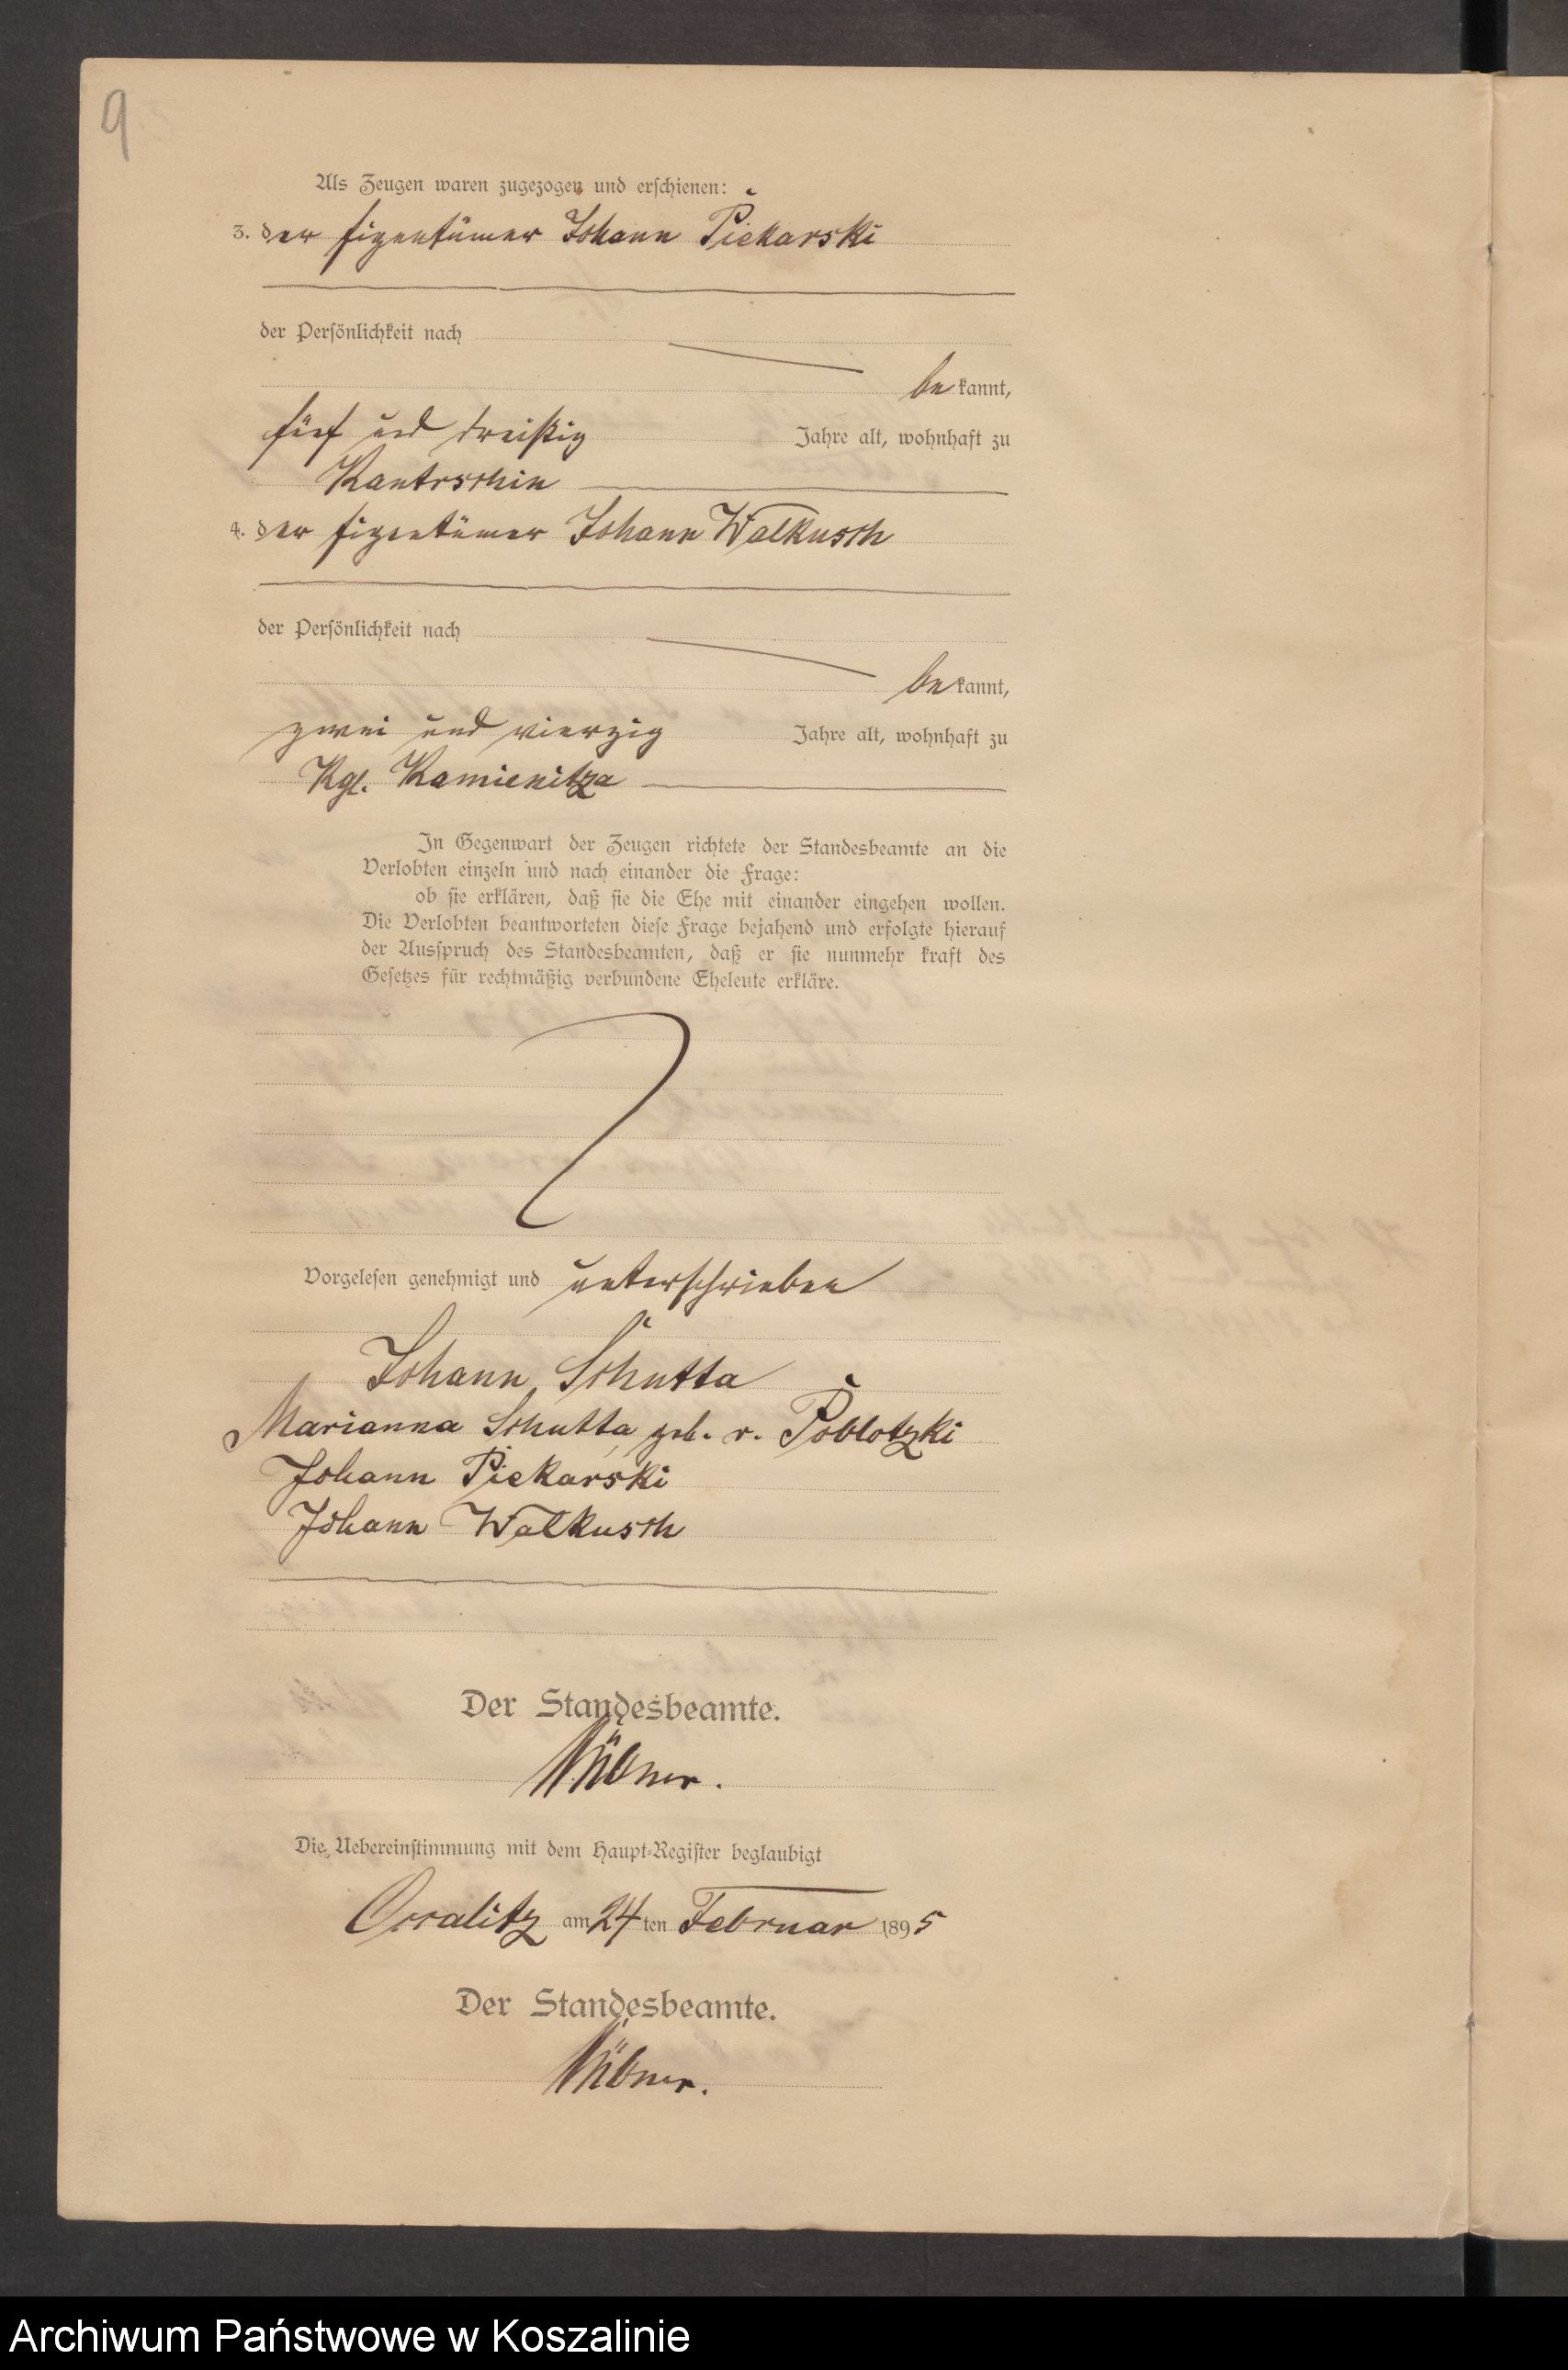 9
Als Zeugen waren zugezogen und erschienen:
3. der Eigentümer Johann Piekarski
der Persönlichkeit nach
bekannt,
fünf und dreißig Jahre alt, wohnhaft zu
Kantrschin
4. der Eigentümer Johann Walkusch
der Persönlichkeit nach
bekannt,
zwei und vierzig Jahre alt, wohnhaft zu
Kgl. Kamienitza
In Gegenwart der Zeugen richtete der Standesbeamte an die
Verlobten einzeln und nach einander die Frage:
ob sie erklären, daß sie die Ehe mit einander eingehen wollen.
Die Verlobten beantworteten diese Frage bejahend und erfolgte hierauf
der Ausspruch des Standesbeamten, daß er sie nunmehr kraft des
Gesetzes für rechtmäßig verbundene Eheleute erkläre.
Vorgelesen genehmigt und unterschrieben
Johann Schutta
Marianna Schutta geb. v. Poblotzki
Johann Piekarski
Johann Walkusch
Der Standesbeamte.
Die Uebereinstimmung mit dem Haupt-Register beglaubigt
Occalitz am 24ten Februar 1895
Der Standesbeamte.
Archiwum Państwowe w Koszalinie